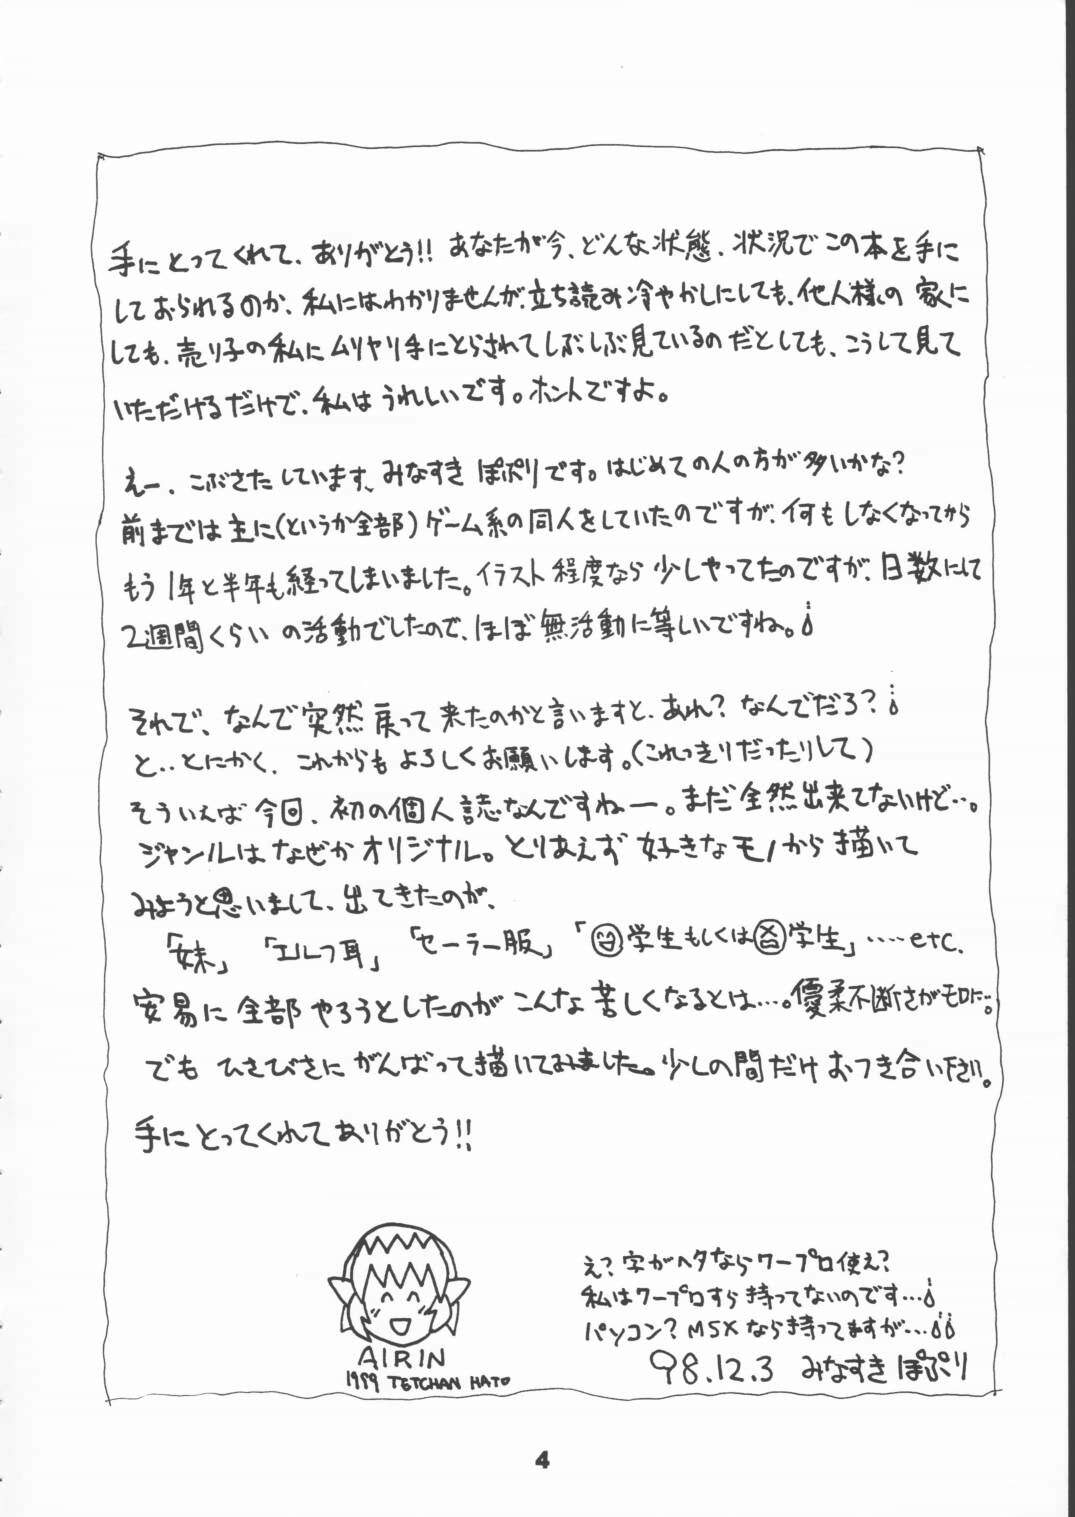 手にとってくれて、ありがとう!! あなたが今、どんな状態、状況でこの本を手に
しておられるのか、私にはわかりませんが、立ち読み冷やかしにしても、他人様の家に
しても、売り子の私にムリヤリ手にとらされてしぶしぶ見ているのだとしても、こうして見て
いただけるだけで、私はうれしいです。ホントですよ。
えー、こぶさたしています、みなすきぽぷりです。はじめての人の方が多いかな?
前までは主に(というか全部)ゲーム系の同人をしていたのですが、何もしなくなってから
もう1年と半年も経ってしまいました。イラスト程度なら少しやってたのですが、日数にして
2週間くらいの活動でしたので、ほぼ無活動に等しいですね。
それで、なんで突然戻って来たのかと言いますと、あれ?なんでだろ?
と‥とにかく、これからもよろしくお願いします。(これっきりだったりして)
そういえば今回、初の個人誌なんですねー。まだ全然出来てないけど…。
ジャンルはなぜかオリジナル。とりあえず好きなモノから描いて
みようと思いまして、出てきたのが、
「妹」 「エルフ耳」 「セーラー服」 「学生もしくは学生」‥‥etc.
安易に全部やろうとしたのがこんな苦しくなるとは…。優柔不断さがモロに。
でもひさびさにがんばって描いてみました。少しの間だけおつき合い下さい。
手にとってくれてありがとう!!
え?字がヘタならワープロ使え?
私はワープロすら持ってないのです…
パソコン?MSXなら持ってますが…
98.12.3 みなすきぽぷり
AIRIN
1989 TETCHAN HATO
4